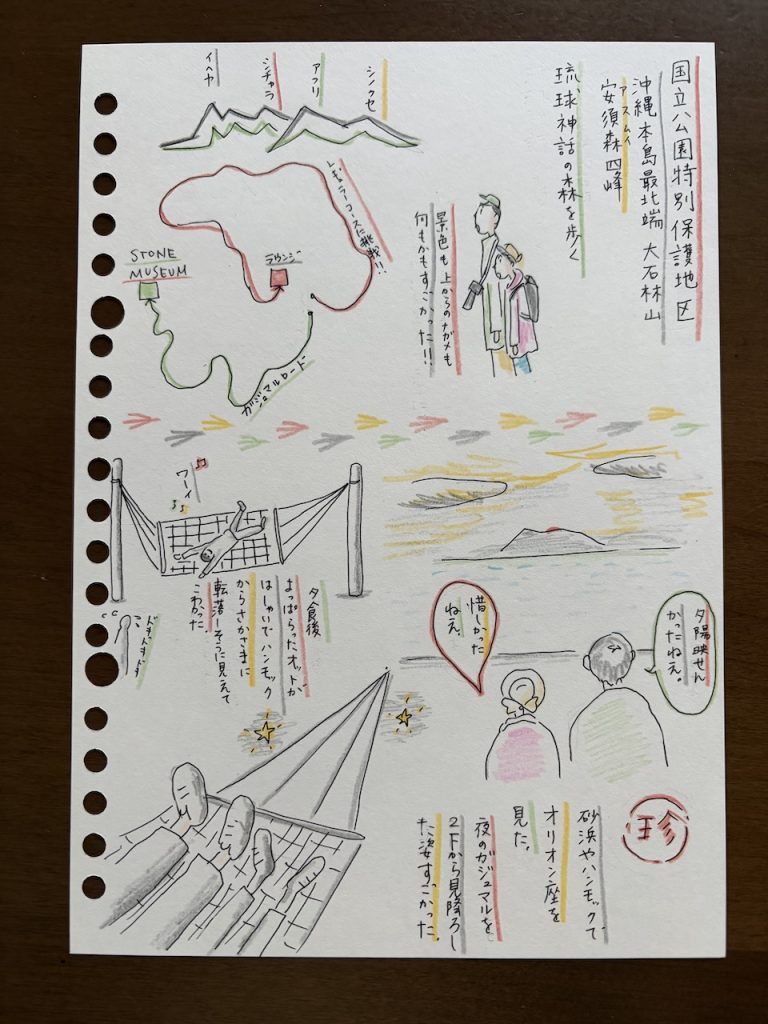 国立公園特別保護地区
沖縄本島最北端 大石林山
アスムイ
安須森四峰
琉球神話の森を歩く
シノクセ
アフリ
シヂャラ
イヘヤ
レギュラーコースに挑戦!!
ラウンジ
STONE
MUSEUM
ガジュマルロード
景色も上からのナガメも
何もかもすごかった!!
ワーイ
夕食後
よっぱらったオットが
はしゃいでハンモック
からさかさまに
転落しそうに見えて
こわかった。
ドキドキドキ
夕陽映せん
かったねえ。
惜しかった
ねえ。
珍
砂浜やハンモックで
オリオン座を
見た。
夜のガジュマルを
2Fから見降ろし
た姿すごかった。